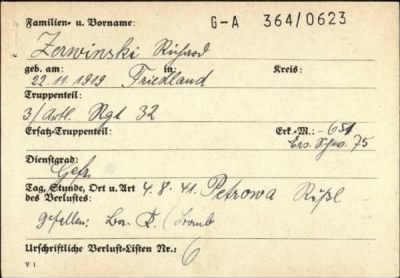 Familien- u. Vorname: G-A 364/0623
Zerwinski Richard
geb. am: in: Kreis:
22.11.1919 Friedland
Truppenteil:
3/Artl. Rgt 32
Ersatz-Truppenteil: Erk.-M.: -651
Ers. 75
Dienstgrad:
Gefr.
Tag, Stunde, Ort u. Art 4.8.41. Petrowa
des Verlustes:
gefallen:
Urschriftliche Verlust-Listen Nr.: 6
V I